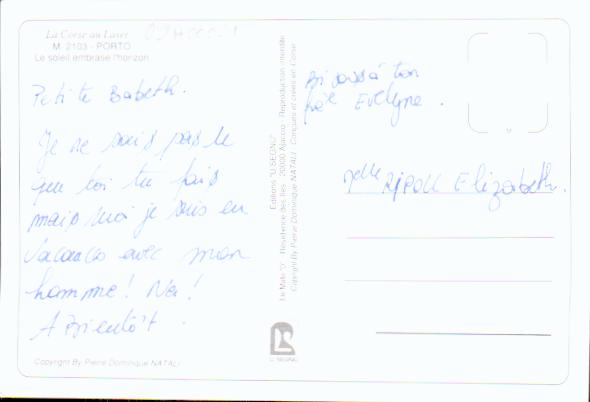 La Corse au Laser
M. 2103 - PORTO
Le soleil embrase l'horizon
Petite Babeth.
Je ne sais pas le
que toi tu fais
mais moi je suis en
vacances avec mon
homme! Na!
A Bientôt.
Copyright By Pierre Dominique NATALI
Editions "U SEGNU"
Résidence des Iles - 20000 Ajaccio - Reproduction interdite
Copyright By Pierre Dominique NATALI - Conçues et créées en Corse
U SEGNU
Bisous à ton
Evelyne.
Melle RIPOLL Elizabeth.